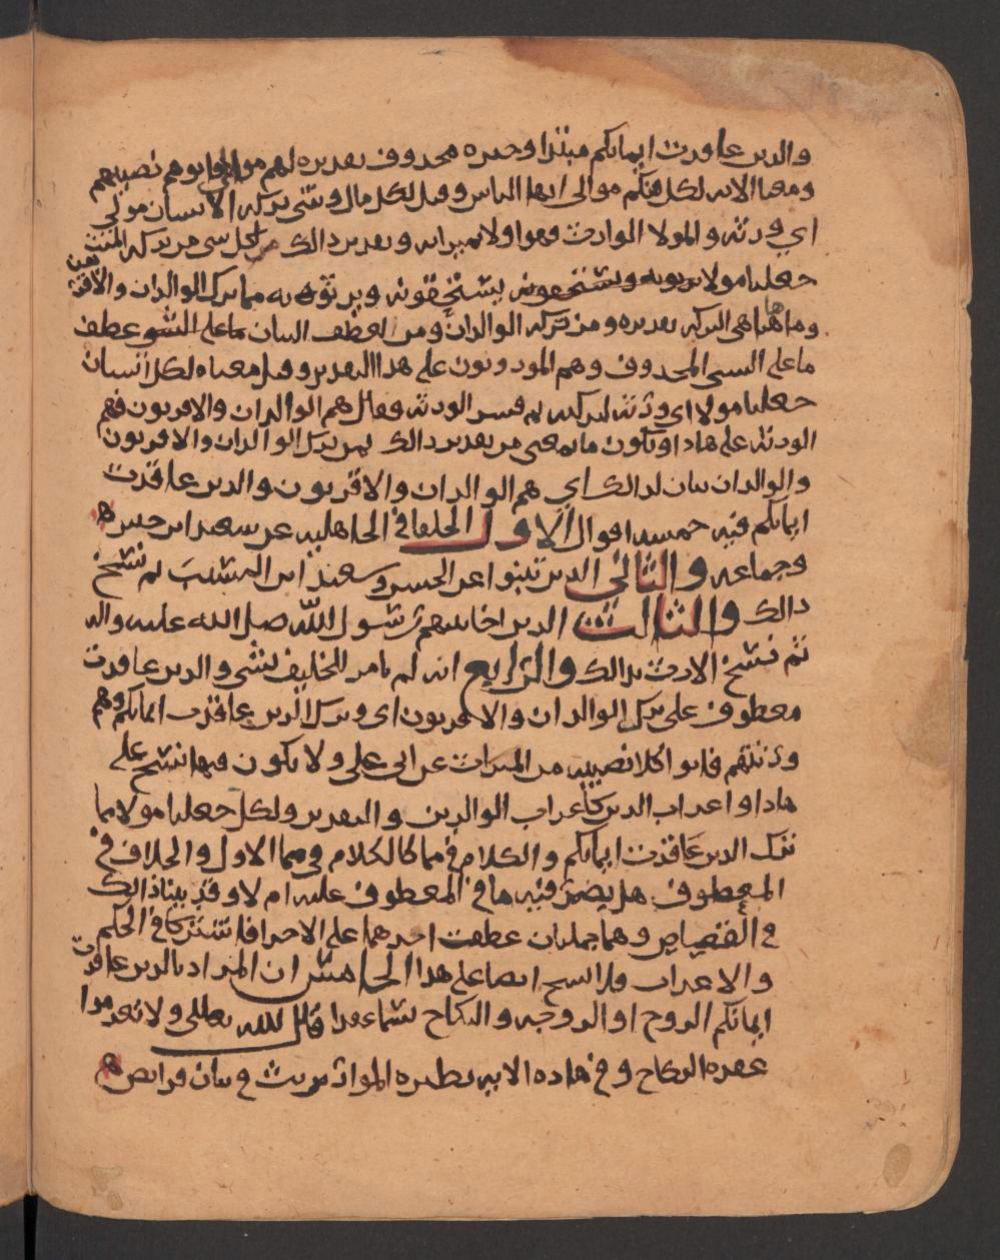 والدين عاقدت ايمانكم مبتدا وخبره محدوف تقديره لهم موالي فاتوهم نصيبهم
ومعنا الايه لكل منكم موالى ايها الناس وقيل لكل مال وشى تركه الانسان مولى
اي ورثه والمولا الوارث وهو اولا بميراثه وتقدير دالك من كل شى من تركه الميت
جعلنا مولا يرثونه ويستحقونه يستحقونه ويرثونه مما ترك الوالدان والاقربون
وما هاهنا هي التركه تقديره ومن تركه الوالدان ومن لعطف البيان ما على الشو عطف
ما على الشى المحدوف وهم المورثون على هدا التقدير وقيل معناه لكل انسان
جعلنا مولا اي ورثه لتركته ثم فسر الورثه فقال هم الوالدان والاقربون فهم
الورثه على هادا وتكون ما بمعنى من تقدير دالك لمن ترك الوالدان والاقربون
والوالدان بيان لدالك اي هم الوالدان والاقربون والدين عاقدت
ايمانكم فيه خمسه اقوال الاول الحلفا في الجاهليه عن سعيد ابن جبير
وجماعه والثاني الدين تبنوا عن الحسن وسعيد ابن المسيب ثم نسخ
دالك والثالث الدين اخا بينهم رسول الله صلى الله عليه واله
ثم نسخ الارث بدالك والرابع انه لم يامر للحليف بشى والدين عاقدت
معطوف على ترك الوالدان والاقربون اى وترك الدين عاقدت ايمانكم وهم
ورثتهم فاتوا كلا نصيبه من الميراث عن ابى على ولا يكون فيها نسخ على
هادا واعراب الدين كاعراب الوالدين والتقدير ولكل جعلنا مولا مما
ترك الدين عاقدت ايمانكم والكلام في ما كالكلام في ما الاول والخلاف في
المعطوف هل يضمر فيه ما في المعطوف عليه ام لا وقد بينا دالك
في القصاص وهما جملتان عطفت احدهما على الاخرا فاشتركا في الحكم
والاعراب ولا نسخ ايضا على هدا الخامس ان المراد بالدين عاقدت
ايمانكم الزوج او الزوجه والنكاح يسما عقدا قال الله تعالى ولا تعزموا
عقده النكاح وفي هاده الايه نظيره المواريث في بيان فرايض